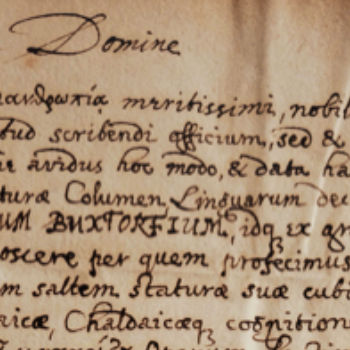 Domine
ανθρωπία meritissimi, nobil
tud scribendi officium, sed &
avidus hoc modo, & data ha
turæ Columen, Linguarum dec
UM BUXTORFIUM, idq ex
oscere per quem profecimus
m saltem staturæ suæ cubi
aicæ, Chaldaicæq cognition